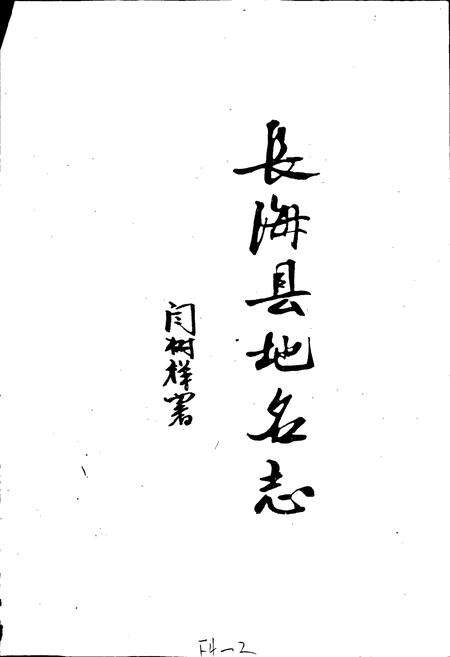 長海县地名志
闫树祥署
F4-2